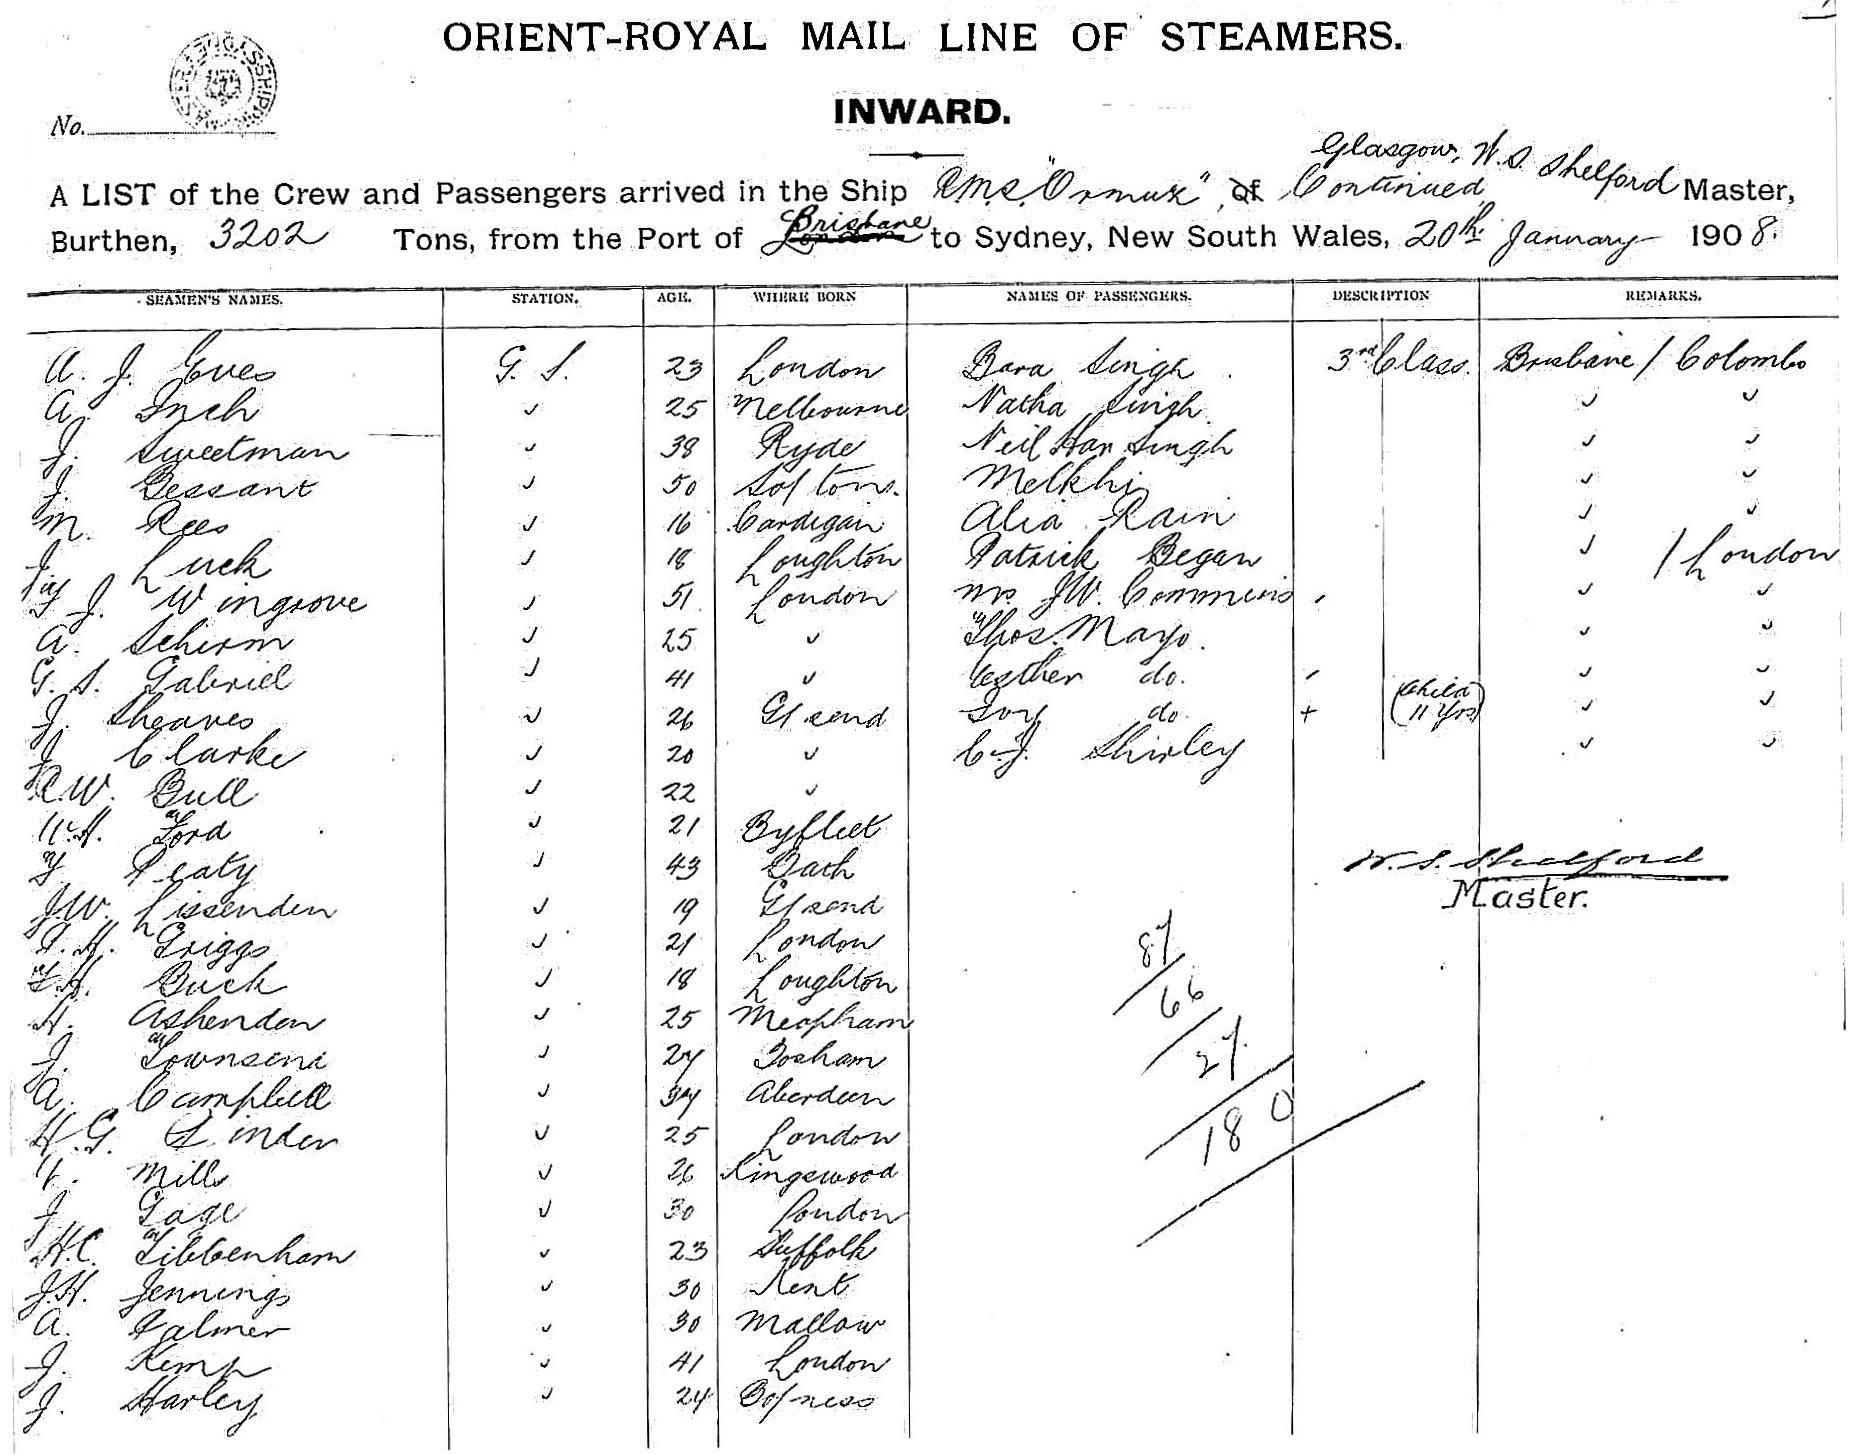 ORIENT-ROYAL MAIL LINE OF STEAMERS.
No.
INWARD.
Glasgow, W. S. Shelford
A LIST of the Crew and Passengers arrived in the Ship R.M.S. "Ormuz", of Continued Master,
Brisbane
Burthen, 3202 Tons, from the Port of London to Sydney, New South Wales, 20th January 1908.
SEAMEN'S NAMES. STATION. AGE. WHERE BORN NAMES OF PASSENGERS. DESCRIPTION REMARKS.
A. J. Eves G. S. 23 London Bara Singh 3rd Class. Brisbane / Colombo
A. Inch " 25 Melbourne Natha Singh " "
J. Sweetman " 38 Ryde Neil Han Singh " "
J. Bessant " 50 So/tons. Melkhi " "
M. Rees " 16 Cardigan Alia Rain " "
J. Luck " 18 Loughton Patrick Began " / London
F J. Wingrove " 51 London Mrs J.W. Commins " "
A. Scherm " 25 " Thos. Mayo. " "
G. S. Gabriel " 41 " Esther do. " "
J. Sheaves " 26 G/send Ivy do. + (Child 11 Yrs) " "
J. Clarke " 20 " C. J. Shirley " "
C.W. Bull " 22 "
W.H. Ford " 21 Byfleet
F Peaty " 43 Bath W. S. Shelford
J.W. Lissenden " 19 G/send Master.
S. H. Griggs " 21 London 87
F.H. Buck " 18 Loughton 66
H. Ashenden " 25 Meopham
J. Townsend " 27 Bosham 27
A. Campbell " 34 Aberdeen
H. G. Linder " 25 London 180
F. Mills " 26 Kingswood
J. Gage " 30 London
H.C. Tibbenham " 23 Suffolk
J.H. Jennings " 30 Kent
A. Palmer " 30 Mallow
J. Kemp " 41 London
J. Harley " 24 Bo/ness